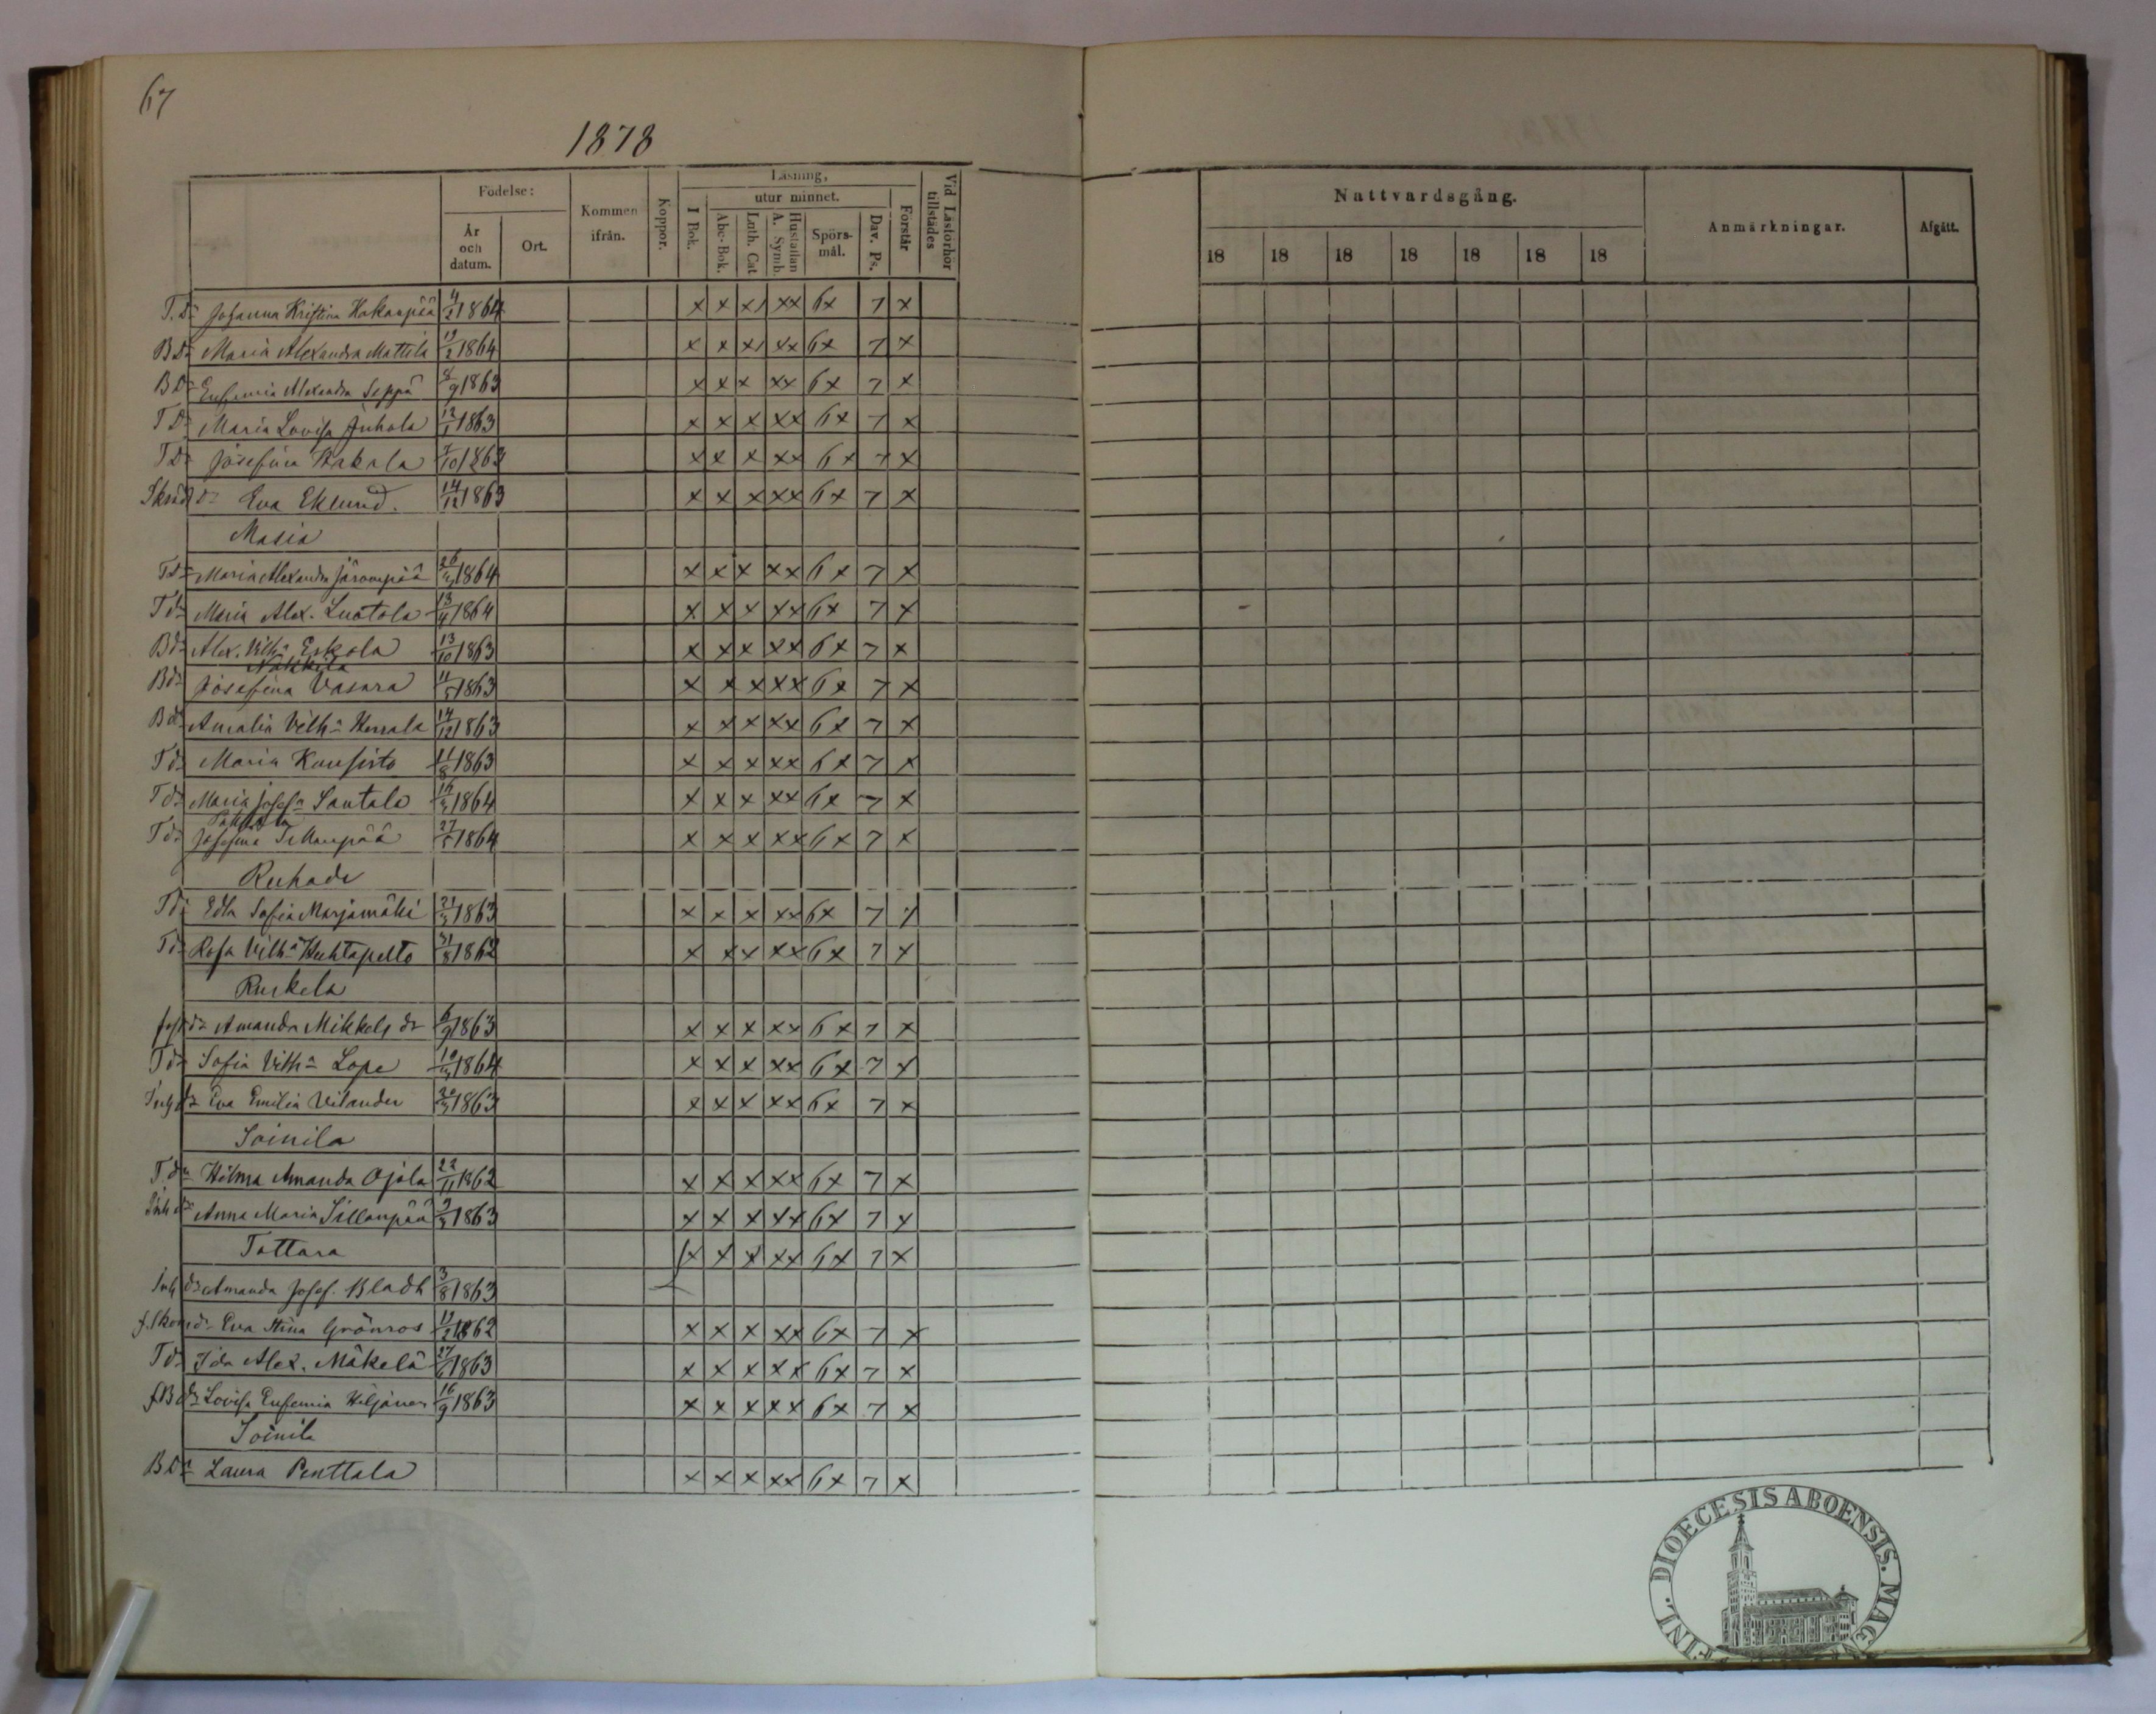 67
1878
Födelse:
År och datum.
Ort.
Kommen ifrån.
Koppor.
Läsning,
utur minnet.
I Bok.
Abc-Bok.
Luth. Cat
Hustaflan A. Symb.
Spörsmål.
Dav. Ps.
Förstår
Vid Läsförhör tillstädes
Nattvardsgång.
18 18 18 18 18 18 18
Anmärkningar.
Afgått.
T.Dr Johanna Kristina Hakanpää 4/2 1864 x x x x x 6x 7 x
BDr Maria Alexandra Mattila 19/2 1864 x x x x x 6x 7 x
BDr Eufemia Alexandra Seppä 8/9 1863 x x x x x 6x 7 x
TDr Maria Lovisa Juhola 12/1 1863 x x x x x 6x 7 x
TDr Josefina 7/10 1863 x x x x x 6x 7 x
Skrädr Eva Eklund. 14/12 1863 x x x x x 6x 7 x
Masia
TDr Maria Alexandra Järvenpää 1864 x x x x x 6x 7 x
Tdr Maria Alex. Luotola 13/4 1864 x x x x x 6x 7 x
Bdr Alex. Vilh:a Eskola 13/10 1863 x x x x x 6x 7 x
Näkkilä
Bdr Josefina Vasara 11/5 1863 x x x x x 6x 7 x
Bdr Amalia Vilh:a 14/12 1863 x x x x x 6x 7 x
Tdr Maria Kuusisto 11/8 1863 x x x x x 6x 7 x
Tdr Maria Josef:a Santala 1864 x x x x x 6x 7 x
Tdr Josefina 1864 x x x x x 6x 7 x
Ruhade
Tdr Edla Sofia Marjamäki 21/3 1863 x x x x x 6x 7 x
Tdr Rosa Vilh:a Huhtapelto 31/8 1862 x x x x x 6x 7 x
Ruskela
dr Amanda Mikkels dr 6/9 1863 x x x x x 6x 7 x
Tdr Sofia Vilh:a Lope 1864 x x x x x 6x 7 x
Inhdr Eva Emilia Vilander 1863 x x x x x 6x 7 x
Soinila
T.dr Hilma Amanda Ojala 22/11 1862 x x x x x 6x 7 x
Inhdr Anna Maria Sillanpää 9/3 1863 x x x x x 6x 7 x
Tattara x x x x x 6x 7 x
Inhdr Amanda Josef. Bladh 3/8 1863
f.Skomdr Eva Stina Grönros 1862 x x x x x 6x 7 x
Tdr Ida Alex. Mäkelä 27/6 1863 x x x x x 6x 7 x
fBdr Lovisa Eufemia Hiljanen 16/9 1863 x x x x x 6x 7 x
Soinila
BDr Laura Penttala x x x x x 6x 7 x
DIOECESIS ABOENSIS.